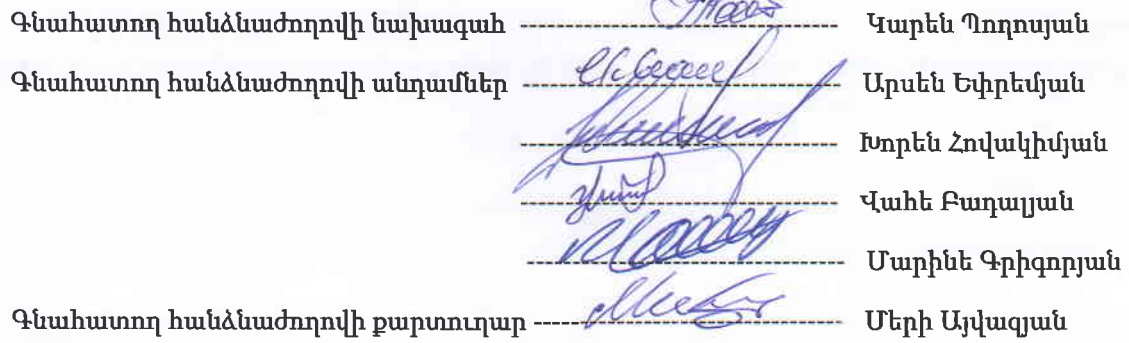 Գնահատող հանձնաժողովի նախագահ ---------------------------- Կարեն Պողոսյան
Գնահատող հանձնաժողովի անդամներ ---------------------------- Արսեն Եփրեմյան
---------------------------- Խորեն Հովակիմյան
---------------------------- Վահե Բադալյան
---------------------------- Մարինե Գրիգորյան
Գնահատող հանձնաժողովի քարտուղար ---------------------------- Մերի Այվազյան